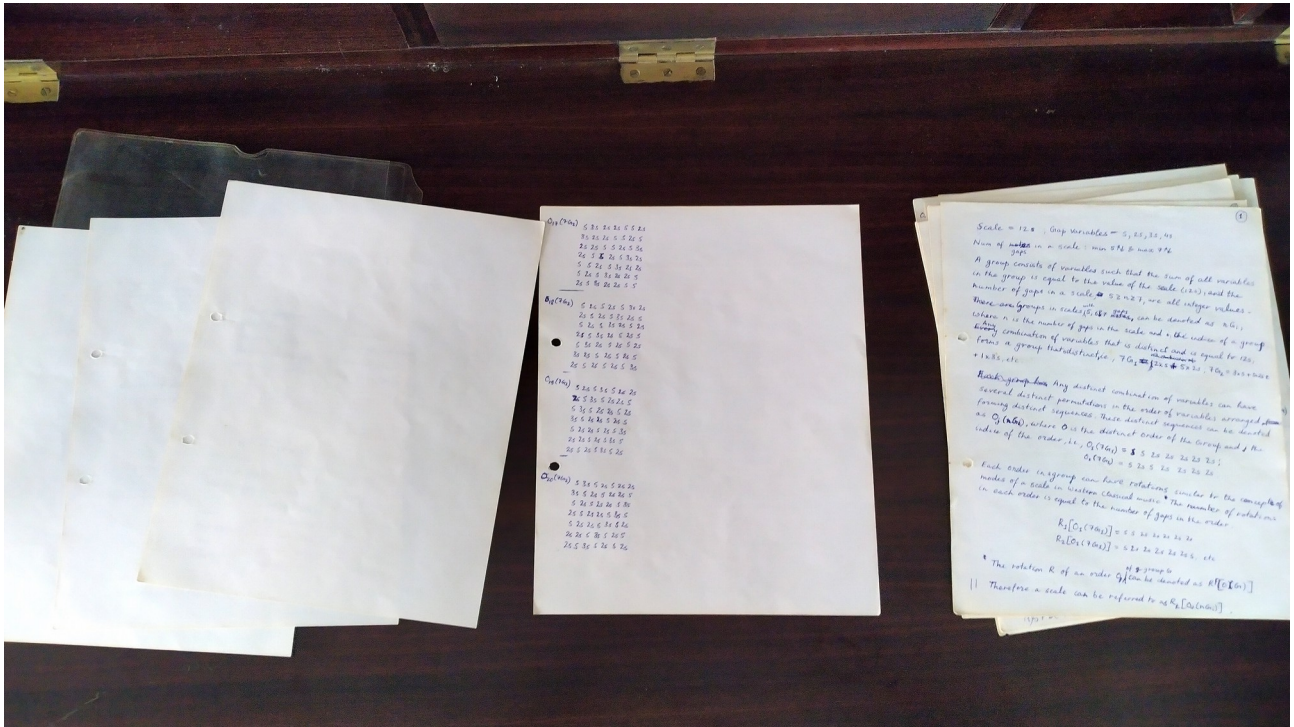 O₁₇(7G₂)
S 3S 2S 2S S S 2S
3S 2S 2S S S 2S S
2S 2S S S 2S S 3S
2S S S 2S S 3S 2S
S S 2S S 3S 2S 2S
S 2S S 3S 2S 2S S
2S S 3S 2S 2S S S
O₁₈(7G₂)
S 2S S 2S S 3S 2S
2S S 2S S 3S 2S S
S 2S S 3S 2S S 2S
2S S 3S 2S S 2S S
S 3S 2S S 2S S 2S
3S 2S S 2S S 2S S
2S S 2S S 2S S 3S
O₁₉(7G₂)
S 2S S 3S S 2S 2S
2S S 3S S 2S 2S S
S 3S S 2S 2S S 2S
3S S 2S 2S S 2S S
S 2S 2S S 2S S 3S
2S 2S S 2S S 3S S
2S S 2S S 3S S 2S
O₂₀(7G₂)
S 3S S 2S S 2S 2S
3S S 2S S 2S 2S S
S 2S S 2S 2S S 3S
2S S 2S 2S S 3S S
S 2S 2S S 3S S 2S
2S 2S S 3S S 2S S
2S S 3S S 2S S 2S
1
Scale = 12s ; Gap variables - S, 2S, 3S, 4S
Num of gaps in a scale : min 5 & max 7
A group consists of variables such that the sum of all variables
in the group is equal to the value of the scale (12s), and the
number of gaps in a scale 5 ≤ n ≤ 7, are all integer values.
There are groups in scales, can be denoted as nGᵢ,
where n is the number of gaps in the scale and i the indice of a group
Any combination of variables that is distinct and is equal to 12s,
forms a group that distinct i.e. 7G₁ = 2xS + 5x2S, 7G₂ =
+ 1x3S, etc
Any distinct combination of variables can have
several distinct permutations in the order of variables arranged,
forming distinct sequences. These distinct sequences can be denoted
as Oⱼ(nGᵢ), where O is the distinct order of the Group and j the
indice of the order, i.e., O₁(7G₁) = S S 2S 2S 2S 2S 2S ;
O₂(7G₁) = S 2S S 2S 2S 2S 2S
Each order in group can have rotations similar to the concept of
modes of a scale in Western Classical music. The number of rotations
in each order is equal to the number of gaps in the order.
R₁[O₁(7G₁)] = S S 2S 2S 2S 2S 2S
R₂[O₁(7G₁)] = S 2S 2S 2S 2S 2S S. etc
* The rotation R of an order of a group G can be denoted as R[O(G)]
|| Therefore a scale can be referred to as Rₖ[Oⱼ(nGᵢ)]